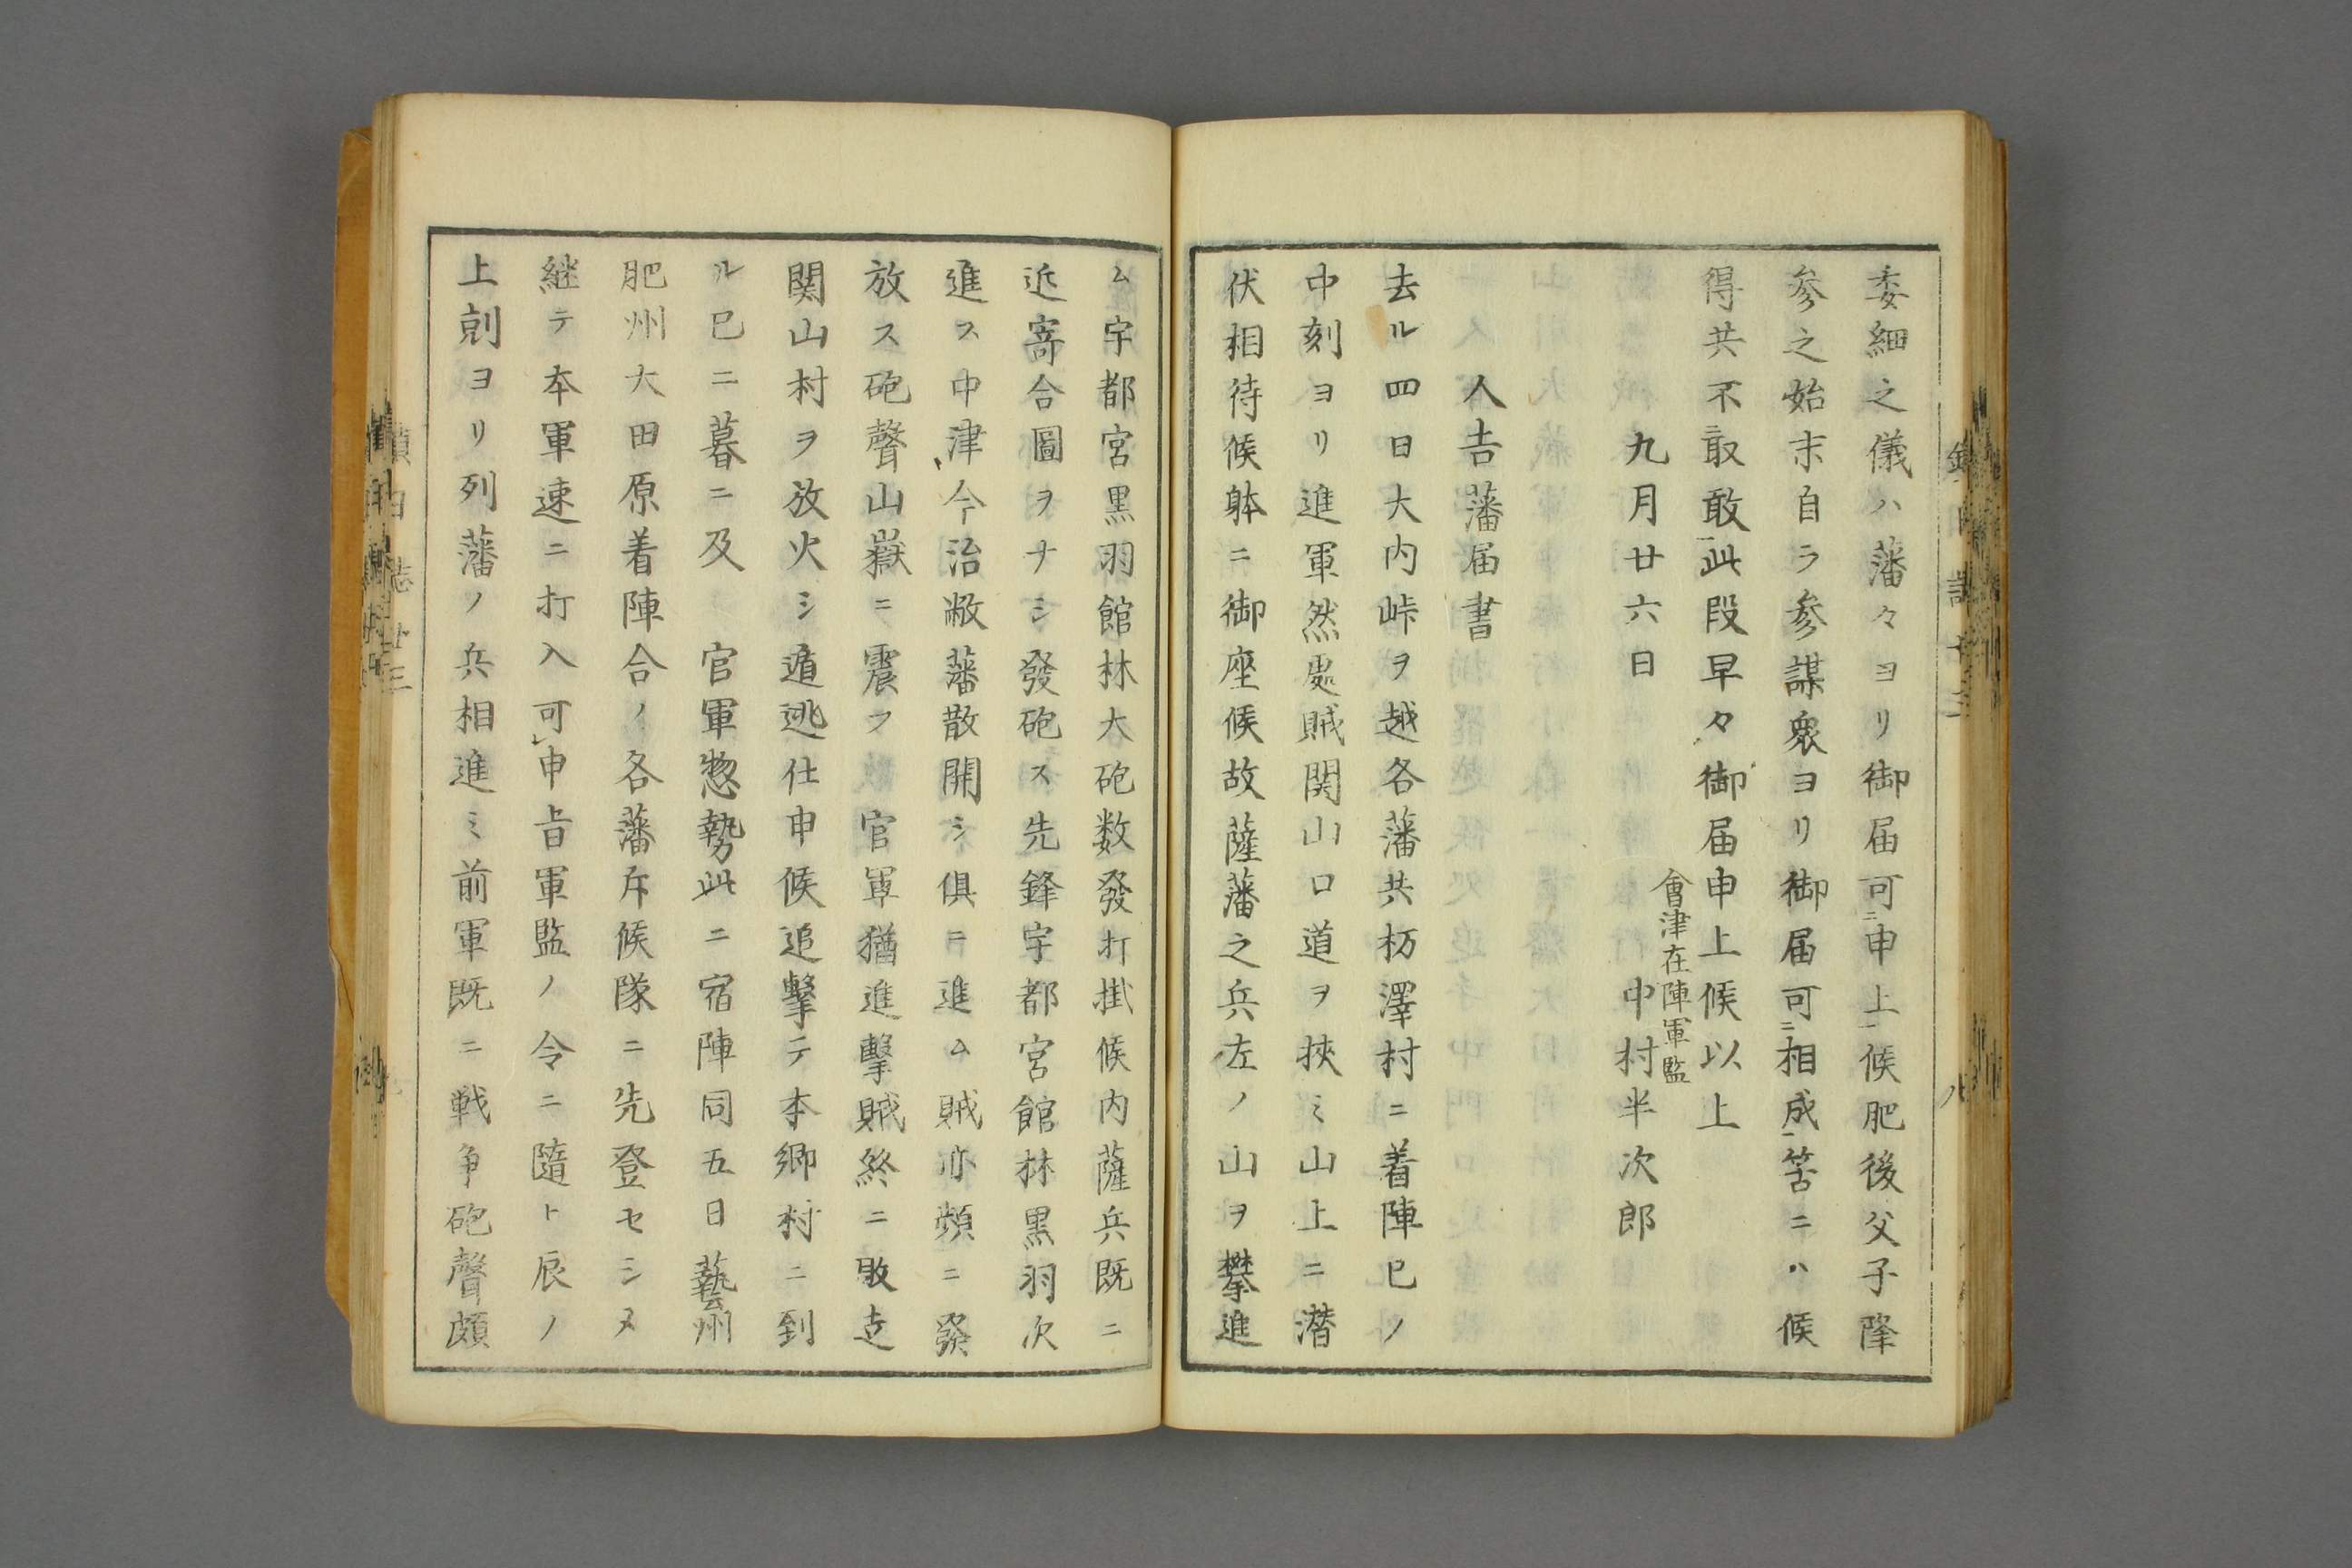 委細之儀ハ藩々ヨリ御届可二申上一候肥後父子降
参之始末自ラ参謀衆ヨリ御届可二相成一筈ニハ候
得共不二取敢一此段早々御届申上候以上
會津在陣軍監
九月廿六日　中村半次郎
人吉藩届書
去ル四日大内峠ヲ越各藩共栃澤村ニ着陣巳ノ
中刻ヨリ進軍然處賊関山口道ヲ挾ミ山上ニ潜
伏相待候躰ニ御座候故薩藩之兵左ノ山ヲ攀進
ム宇都宮黒羽館林大砲数發打掛候内薩兵既ニ
近寄合圖ヲナシ發砲ス先鋒宇都宮館林黒羽次
進ス中津今治敝藩散開シ倶ニ進ム賊亦頻ニ發
放ス砲聲山嶽ニ震フ　官軍猶進擊賊終ニ敗走
関山村ヲ放火シ遁逃仕申候追擊テ本郷村ニ到
ル巳ニ暮ニ及　官軍惣勢此ニ宿陣同五日藝州
肥州大田原着陣合ノ各藩斥候隊ニ先登セシメ
継テ本軍速ニ打入可レ申旨軍監ノ令ニ隨ト辰ノ
上剋ヨリ列藩ノ兵相進ミ前軍既ニ戦争砲聲頗
鎮日誌廿三
八